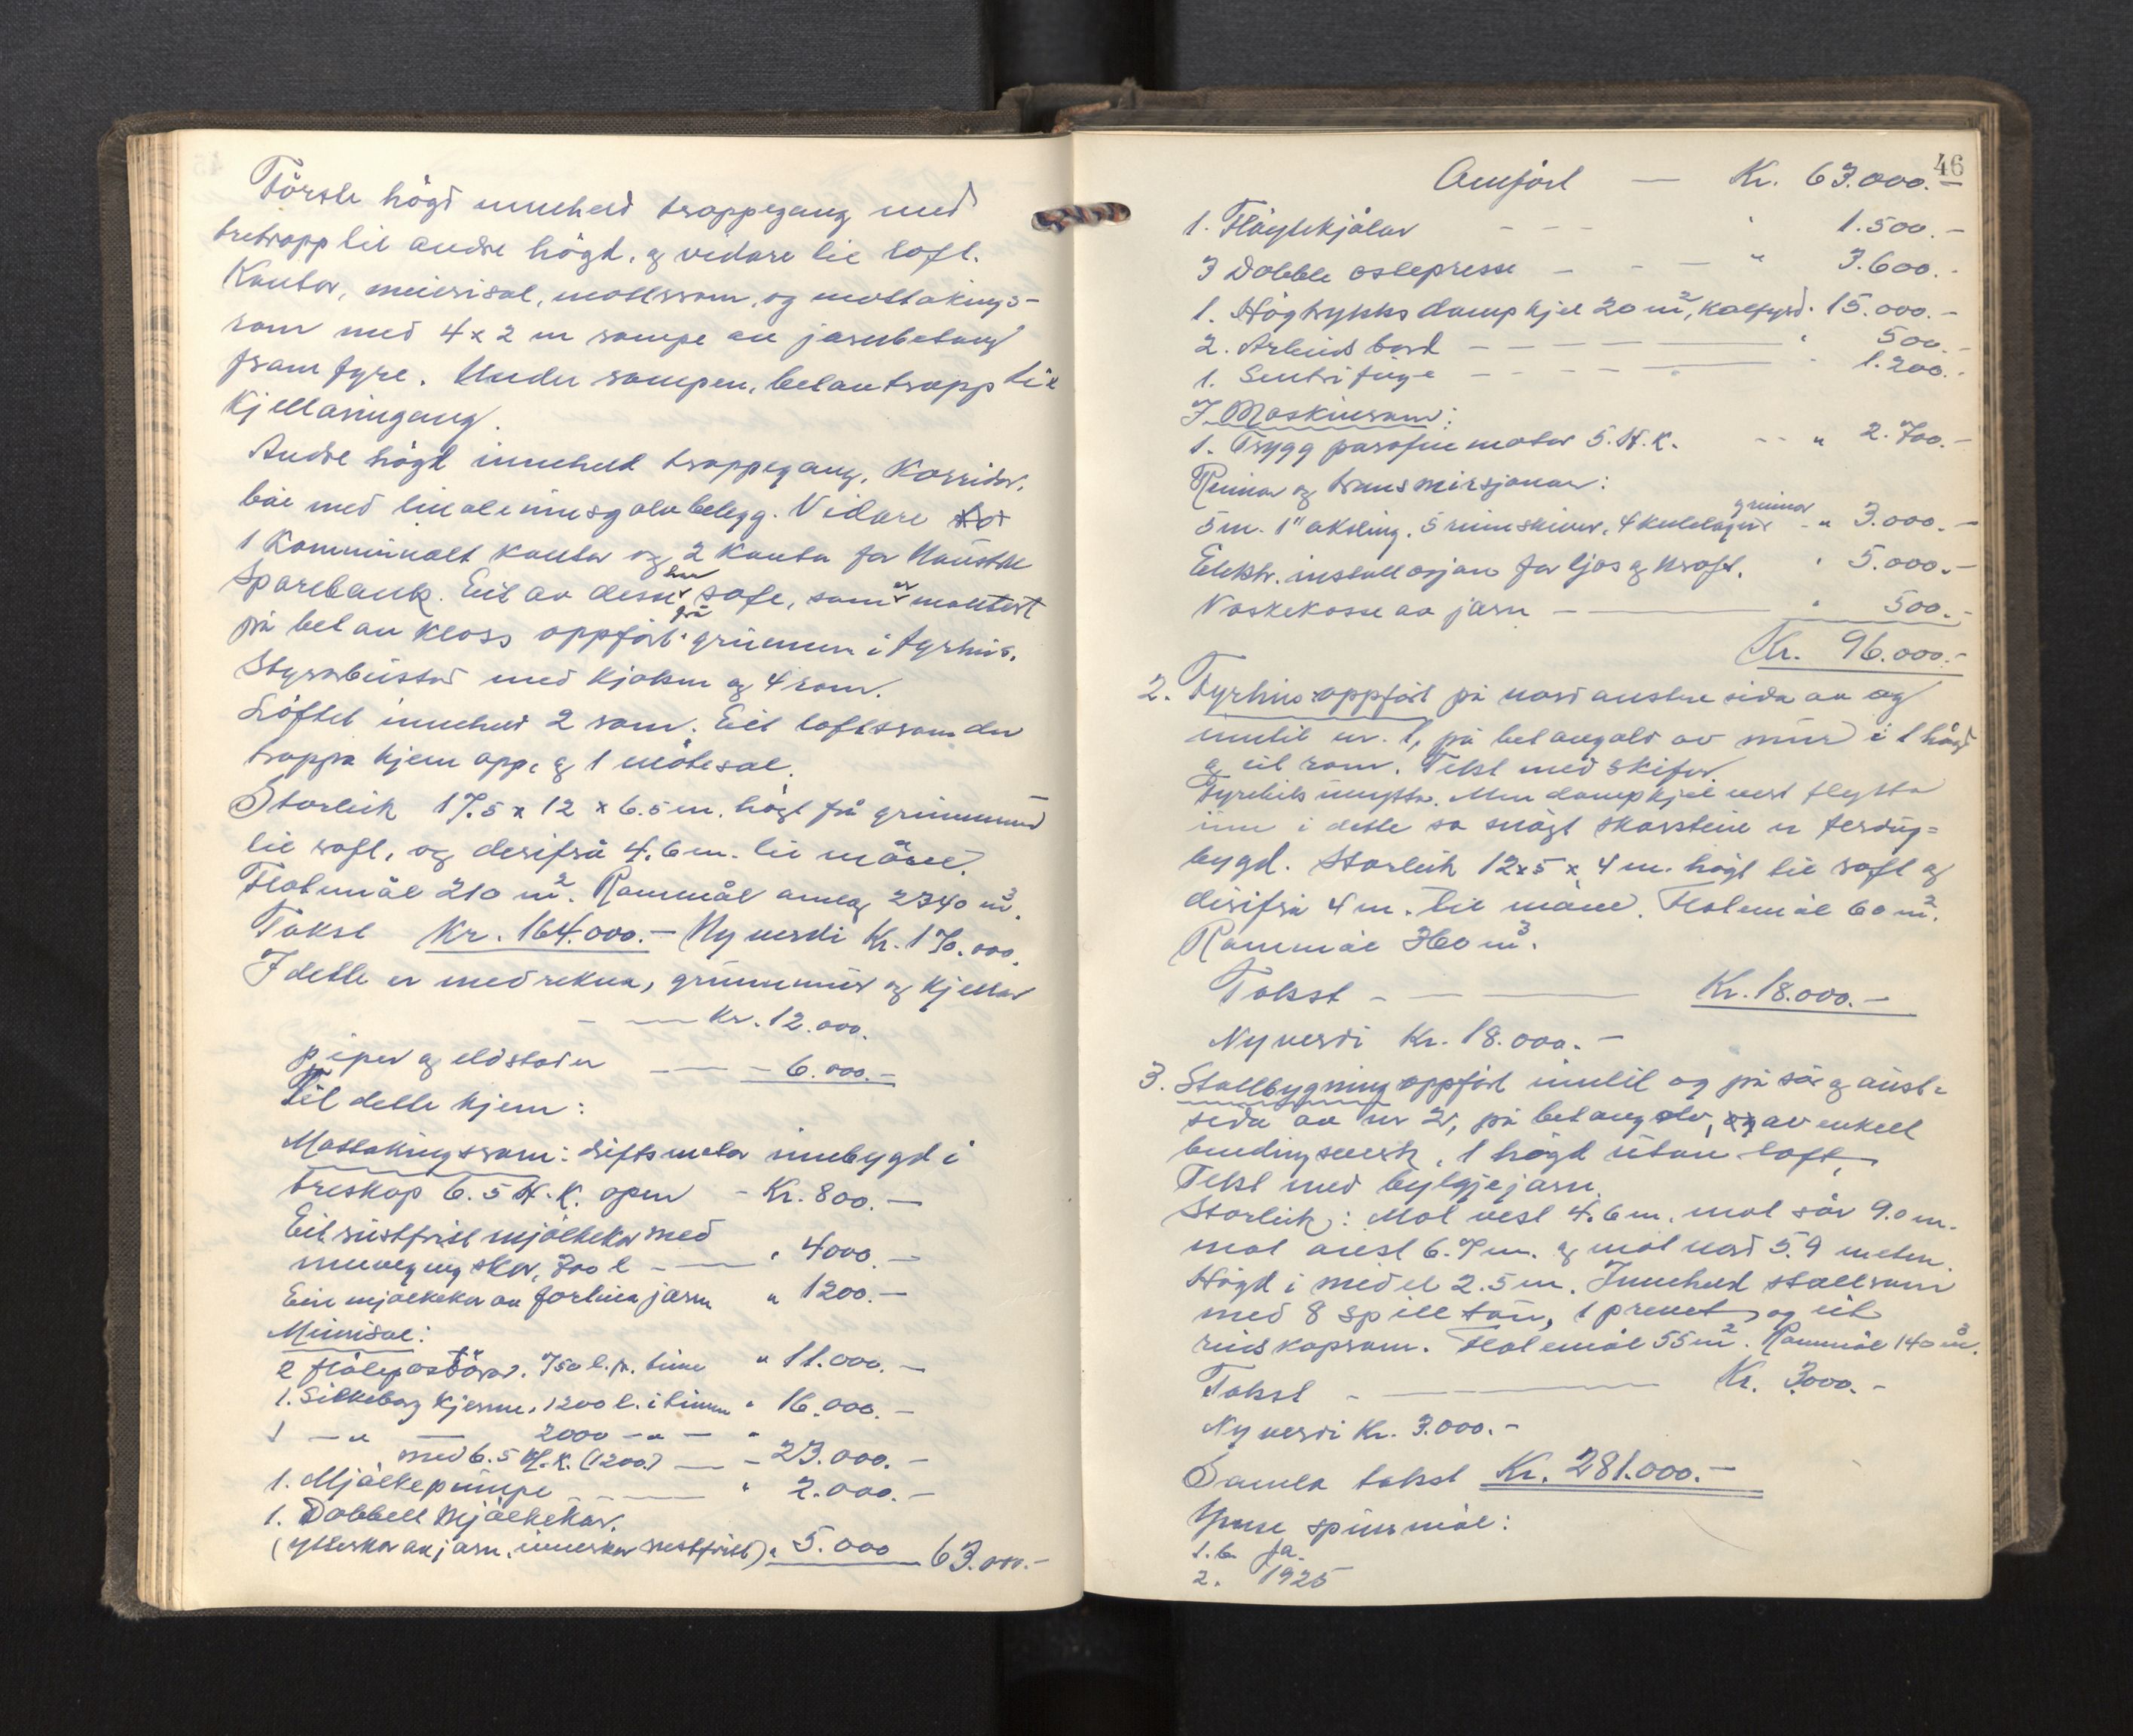 Förste högd inneheld trappegang med
tretrapp til andre högd, og vidare til loft.
Kontor, meierisal, mottrom, og mottakings-
rom med 4 x 2 m rampe av jarnbetong
fram fyre. Under rampen, betontrapp til
Kjellarinngang.
Andre högd inneheld trappegang, Korridor,
bæ med linoleumsgolvbelegg. Vidare
1 Kommunalt kontor og 2 Kontor for Naustdal
Sparebank. Eit av desse har safe, som er montert
på betonkloss oppfört frå grunnen i fyrhus.
Styrarbustad med kjøken og 4 rom.
Loftet inneheld 2 rom. Eit loftsrom der
trappa kjem opp, og 1 mötesal.
Storleik 17.5 x 12 x 6.5 m. högt frå grunnmur
til raft, og derifrå 4.6 m. til möne.
Flatemål 210 m². Rommål omlag 2340 m³.
Takst Kr. 164.000.- Ny verdi Kr. 170.000.
I dette er medrekna, grunnmur og kjellar
- — Kr. 12.000.
piper og eldstader — - 6.000.-
Til dette kjem:
Mottakingsrom: driftsmotor innebygd i
treskap 6.5 H.K. open - Kr. 800.-
Eit rustfrist mjölkekar med
innvegingskar, 700 l - — " 4000.-
Ein mjølkekar av fortinna jarn " 1200.-
Meierisal:
2 flötepastörar. 750 l. pr. time " 11.000.-
1. Silkeborg kjerne, 1200 l. i timen " 16.000.-
1 - " — 2000 - " - "
med 6.5 H.K. (1200.) — - 23.000.-
1. Mjølkepumpe — " 2.000.-
1. Dobbelt Mjølkekar.
(ytterkar av jarn, innerkar rustfritt) " 5.000 63.000.-
46
Omfört — Kr. 63.000.-
1. Flöytekjølar - - - " 1.500.-
3 Dobble ostepresse - - — " 3.600.-
1. Högtrykks dampkjel 20 m², kolfyrd. 15.000.-
2. Arbeids bord - - - — " 500.-
1. Sentrifuge - - - - — " 1.200.-
I Maskinrom:
1. Trygg parafinmotor 5. H.K. - - " 2.700.-
Reimar og transmisjonar:
5 m. 1" aksling, 5 reimskiver, 4 kulelager reimar - " 3.000.-
Elektr. installasjon for ljos og kraft. " 5.000.-
Vaskekasse av jarn - — " 500.-
Kr. 96.000.-
2. Fyrhus oppfört på nordaustre sida av og
inntil nr. 1, på betongolv av mur i 1 högd
og eit rom. Tekt med skifer.
Fyrhus unytta. Men dampkjel vert flytta
inn i dette so snögt skorstein er ferdig-
bygd. Storleik 12 x 5 x 4 m. högt til raft og
derifrå 4 m. til möne. Flatemål 60 m².
Rommål 360 m³.
Takst - — Kr. 18.000.-
Ny verdi Kr. 18.000.-
3. Stallbygning oppfört inntil og på sør og aust-
sida av nr 2, på betongolv, av enkelt
bindingsverk, 1 högd utan loft.
Tekt med bylgjejarn.
Storleik: Mot vest 4.6 m. mot sør 9.0 m.
mot aust 6.7 m. og mot nord 5.9 meter.
Högd i middel 2.5 m. Inneheld stallrom
med 8 spilltau, 1 privet, og eit
reidskapsrom. Flatemål 55 m². Rommål 140 m³.
Takst - — Kr. 3000.-
Ny verdi Kr. 3.000.-
Samla takst Kr. 281.000.-
Ymse spursmål:
1.b Ja.
2. 1925